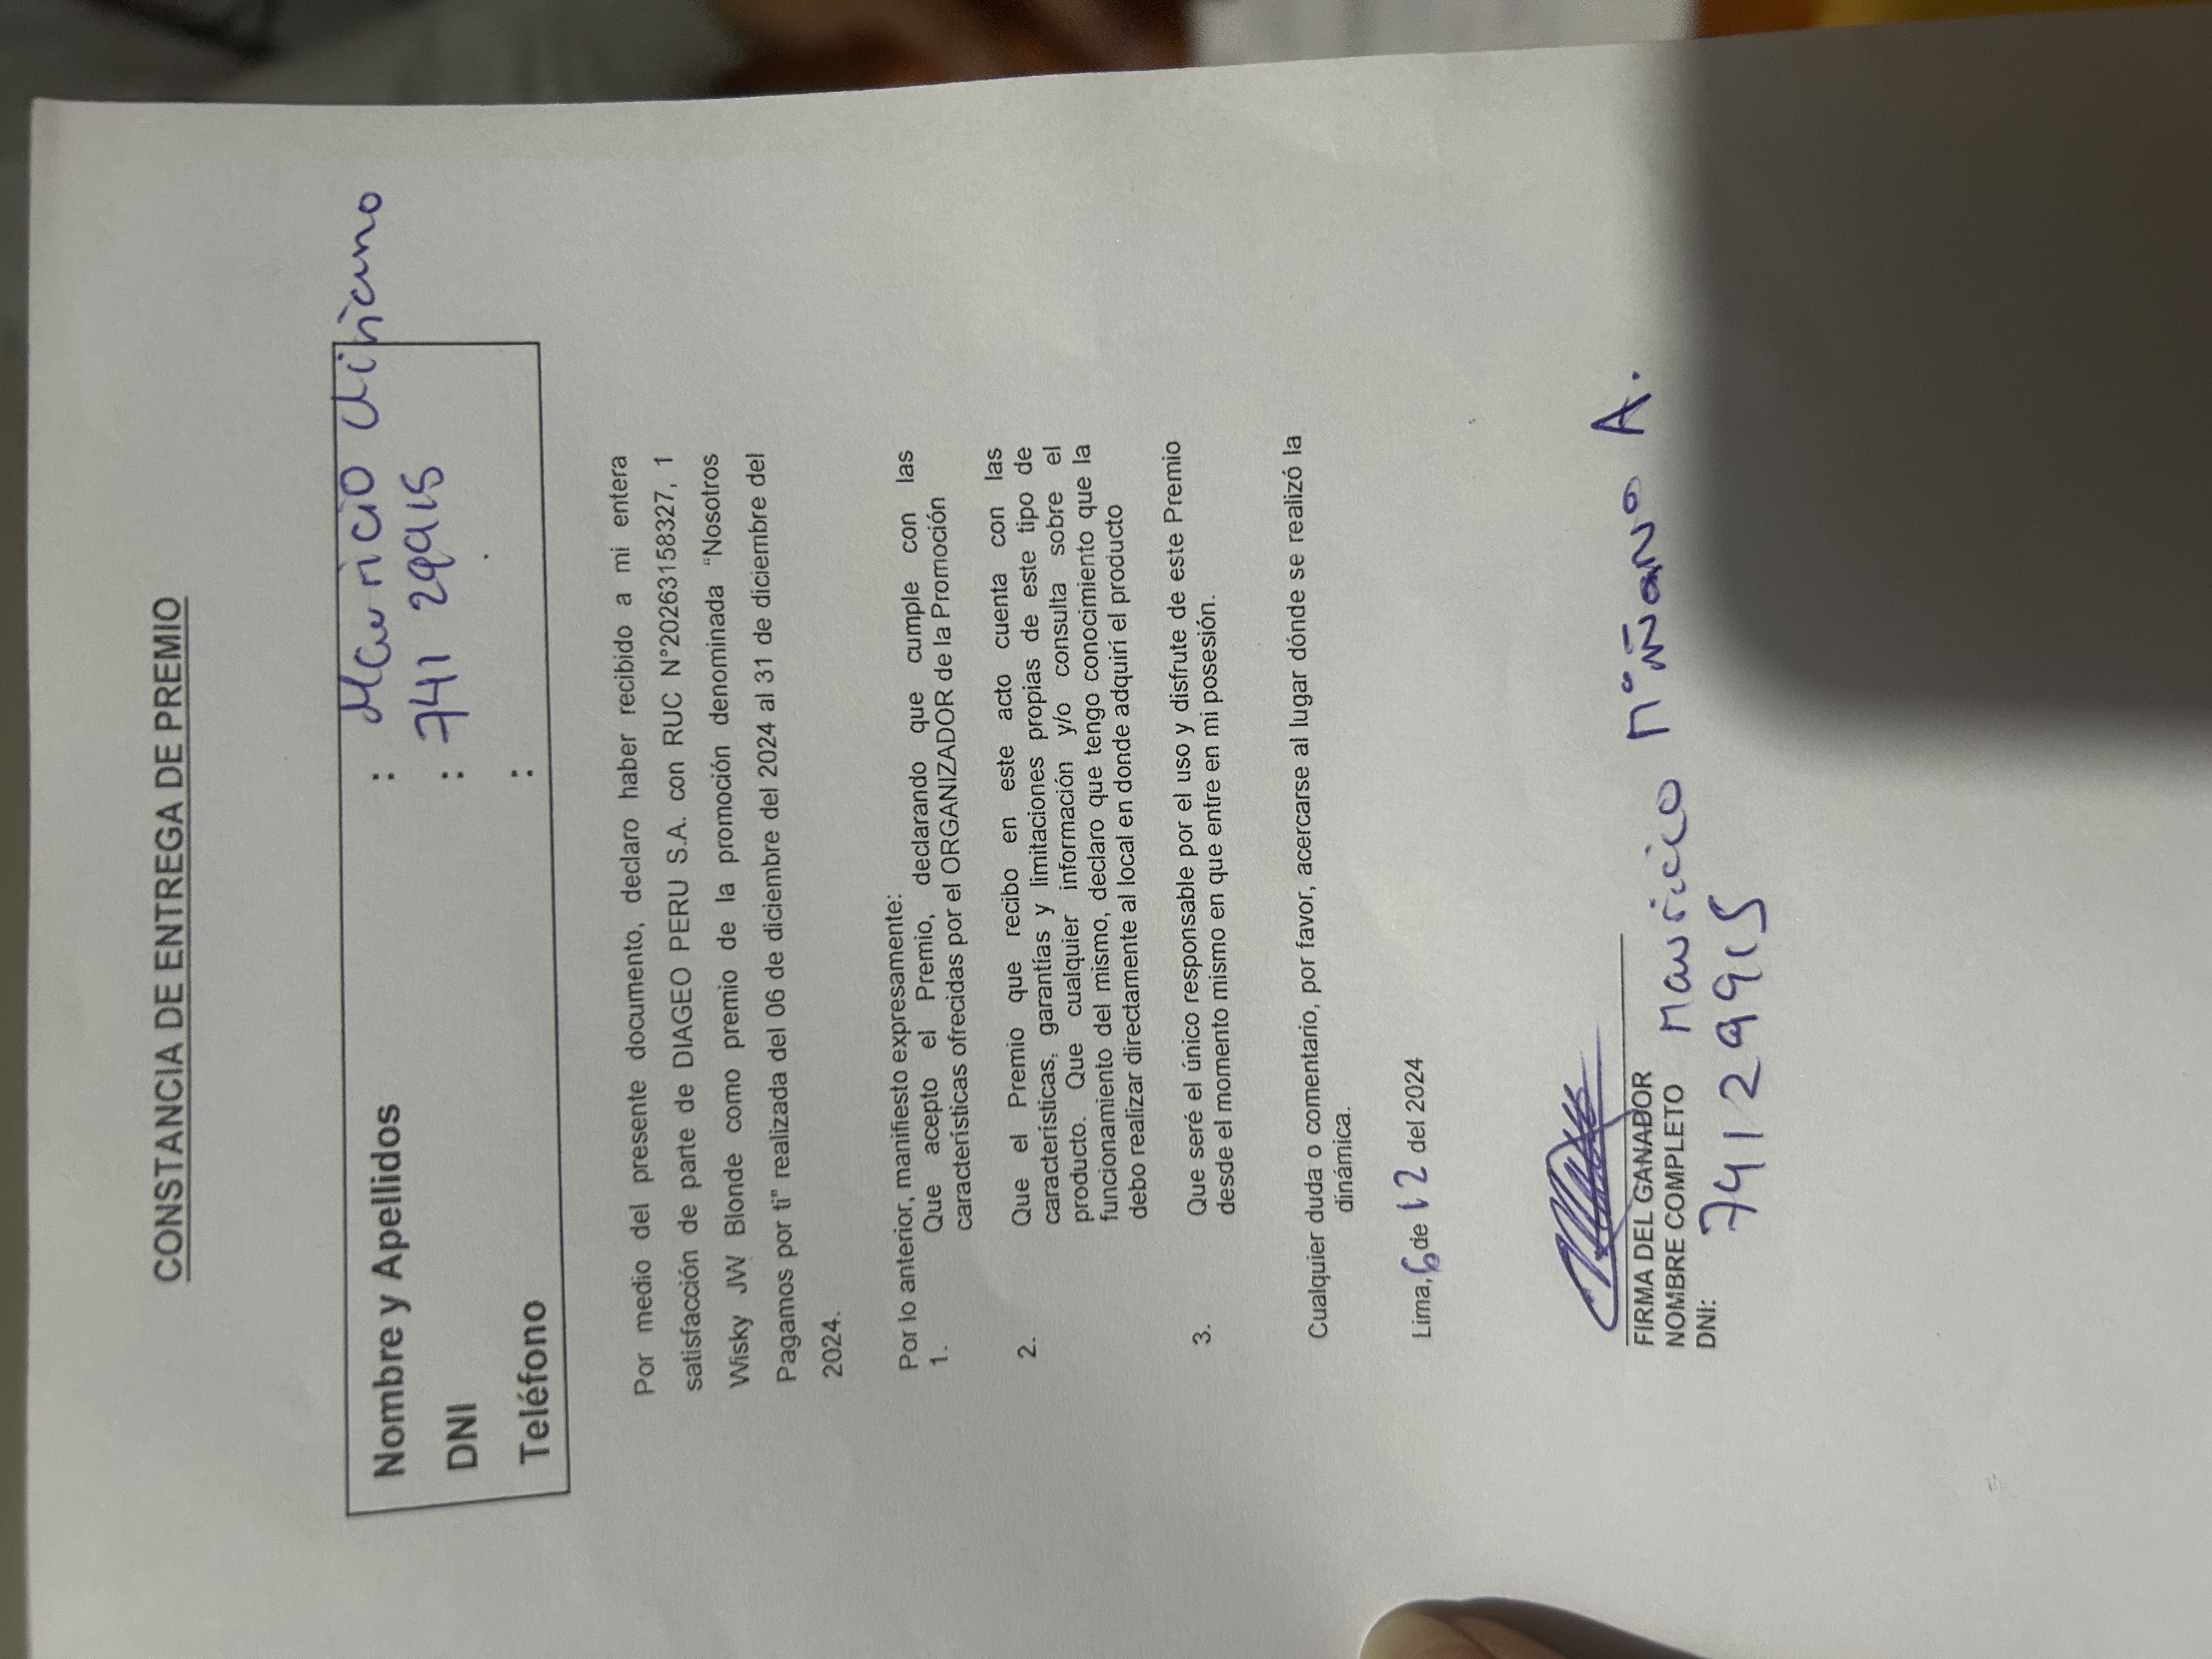 CONSTANCIA DE ENTREGA DE PREMIO
Nombre y Apellidos : Mauricio
DNI : 741 29915
Teléfono :
Por medio del presente documento, declaro haber recibido a mi entera
satisfacción de parte de DIAGEO PERU S.A. con RUC N°20263158327, 1
Wisky JW Blonde como premio de la promoción denominada “Nosotros
Pagamos por ti” realizada del 06 de diciembre del 2024 al 31 de diciembre del
2024.
Por lo anterior, manifiesto expresamente:
1. Que acepto el Premio, declarando que cumple con las
características ofrecidas por el ORGANIZADOR de la Promoción
2. Que el Premio que recibo en este acto cuenta con las
características, garantías y limitaciones propias de este tipo de
producto. Que cualquier información y/o consulta sobre el
funcionamiento del mismo, declaro que tengo conocimiento que la
debo realizar directamente al local en donde adquirí el producto
3. Que seré el único responsable por el uso y disfrute de este Premio
desde el momento mismo en que entre en mi posesión.
Cualquier duda o comentario, por favor, acercarse al lugar dónde se realizó la
dinámica.
Lima, 6 de 12 del 2024
FIRMA DEL GANADOR
NOMBRE COMPLETO Mauricio Miñano A.
DNI: 74129915